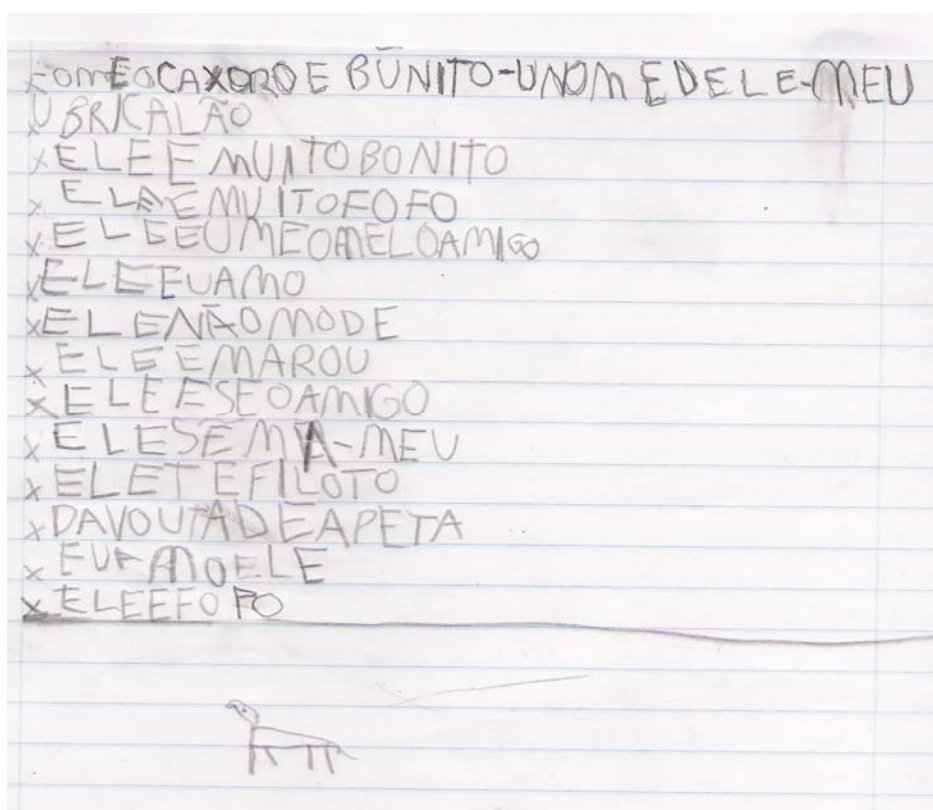 OMEOCAXORO E BUNITO-UNOMEDELE-MEU
UBRICALÃO
XELEE MUITOBONITO
X ELEEMUITOFOFO
XELEEUMEOMELOAMIGO
XELEEUAMO
XELENÃOMODE
XELEEMAROU
XELEESEOAMIGO
XELESEMA-MEU
XELETEFILOTO
XDAVOUTADEAPETA
XEUAMOELE
XELEEFOFO